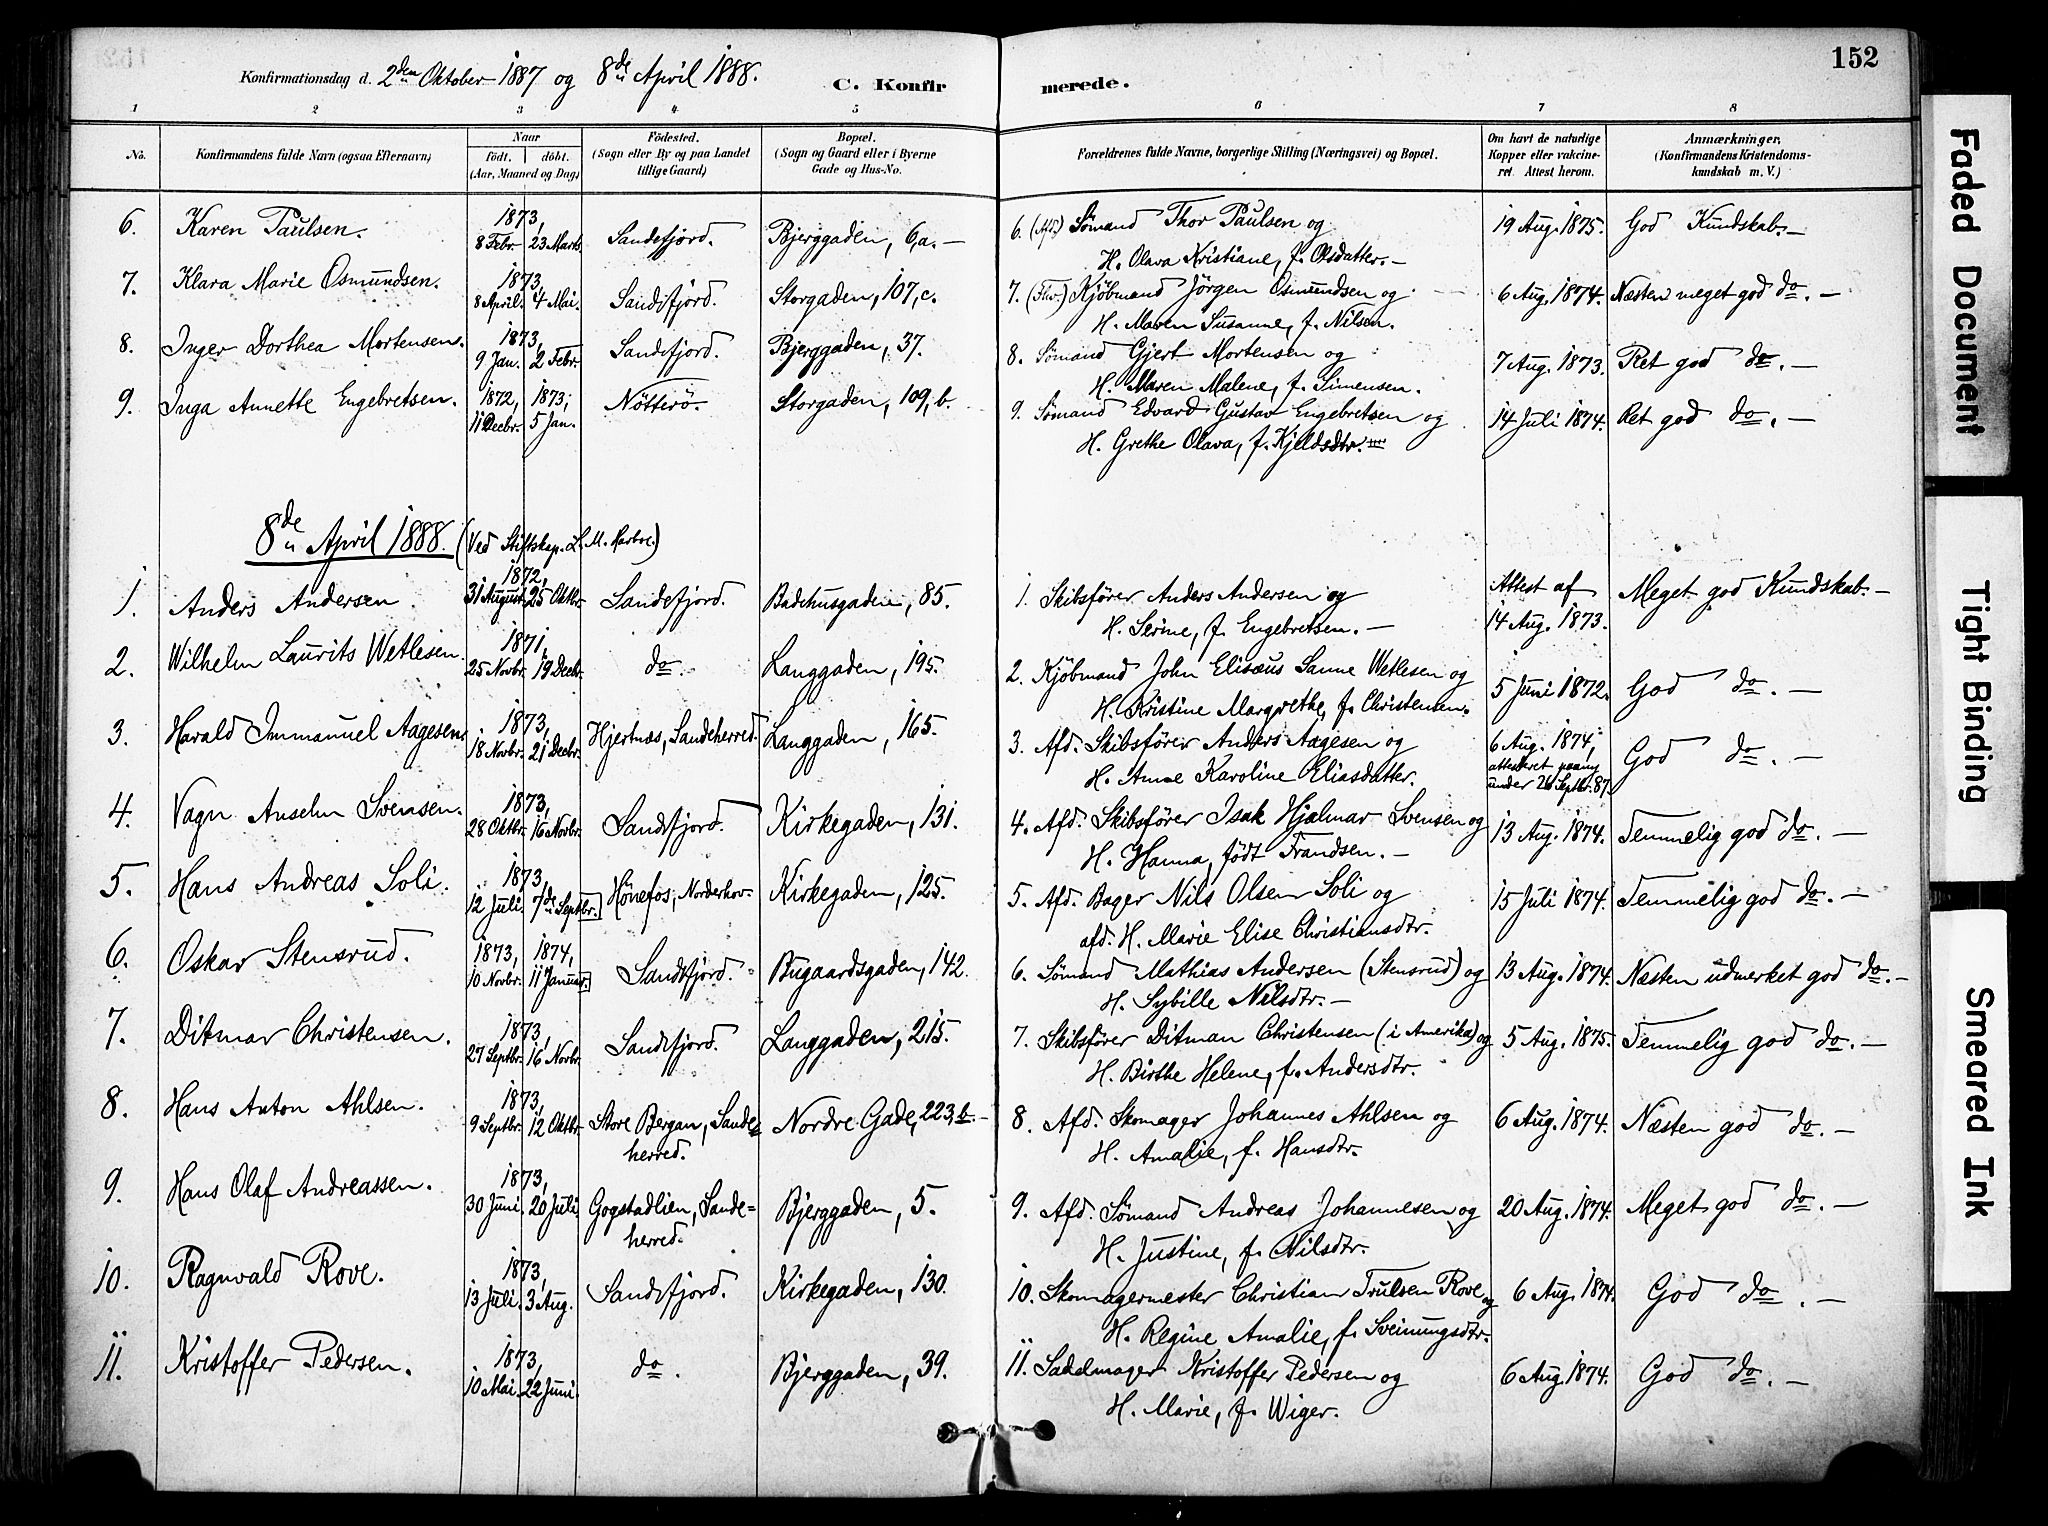 152
Konfirmationsdag d. 2den Oktober 1887 og 8de April 1888.
C. Konfirmerede.
1 2 3 4 5 6 7 8
No. Konfirmandens fulde Navn (ogsaa Efternavn) Naar født. døbt. (Aar, Maaned og Dag) Födested. (Sogn eller By og paa Landet tillige Gaard) Bopæl. (Sogn og Gaard eller i Byerne Gade og Hus-No. Forældrenes fulde Navne, borgerlige Stilling (Næringsvei) og Bopæl. Om havt de naturlige Kopper eller vakcineret. Attest herom. Anmærkninger. (Konfirmandens Kristendomskundskab m. V.)
6. Karen Paulsen. 1873, 8 Febr. 23 Marts. Sandefjord. Bjerggaden, 6,a. — 6. (Afd.) Sømand Thor Paulsen og 19 Aug. 1875. God Kundskab. —
H. Olava Kristiane, f. Olsdatter. —
7. Klara Marie Osmundsen. 1873, 8 April. 4 Mai. Sandefjord. Storgaden, 107, c. 7. (Fhv.) Kjöbmand Jörgen Osmundsen og 6 Aug. 1874. Næsten meget god do. —
H. Maren Susanne, f. Nilsen.
8. Inger Dorthea Mortensen. 1873, 9 Jan. 2 Febr. Sandefjord. Bjerggaden, 37. 8. Sömand Gjert Mortensen og 7 Aug. 1873. Ret god do. —
H. Maren Malene, f. Simensen.
9. Inga Annette Engebretsen. 1872, 11 Decbr. 1873, 5 Jan. Nötterö. Storgaden, 109, b. 9. Sömand Edvard Gustav Engebretsen og 14 Juli 1874. Ret god do. —
H. Grethe Olava, f. Kjeldsdtr.
8de April 1888. (Ved Stiftskap. L. M. Harboe.)
1. Anders Andersen. 1872, 31 August. 25 Oktbr. Sandefjord. Badehusgaden, 85. 1. Skibsförer Anders Andersen og Attest af 14 Aug. 1873. Meget god Kundskab. —
H. Serine, f. Engebretsen. —
2. Wilhelm Laurits Wetlesen. 1871, 25 Novbr. 19 Decbr. do. Langgaden, 195. 2. Kjöbmand John Elisæus Sanne Wetlesen og 5 Juni 1872. God do. —
H. Kristine Margrethe, f. Christensen.
3. Harald Immanuel Aagesen. 1873, 18 Novbr. 21 Decbr. Hjertnæs, Sandeherred. Langgaden, 165. 3. Afd. Skibsförer Anders Aagesen og 6 Aug. 1874, attesteret paany under 26 Septbr. 87. God do. —
H. Anne Karoline Eliasdatter.
4. Vagn Anselm Svensen. 1873, 28 Oktbr. 16 Novbr. Sandefjord. Kirkegaden, 131. 4. Afd. Skibsförer Isak Hjalmar Svensen og 13 Aug. 1874. Temmelig god do. —
H. Hanna, født Frandsen. —
5. Hans Andreas Soli. 1873, 12 Juli. 7de Septbr. Hönefos, Norderhov. Kirkegaden, 125. 5. Afd. Bager Nils Olsen Soli og 15 Juli 1874. Temmelig god do. —
afd. H. Marie Elise Christiansdtr.
6. Oskar Stensrud. 1873, 10 Novbr. 1874, 11 Januar. Sandefjord. Bugaardsgaden, 142. 6. Sömand Mathias Andersen (Stensrud) og 13 Aug. 1874. Næsten udmerket god do. —
H. Sybille Nilsdtr. —
7. Ditmar Christensen. 1873, 27 Septbr. 16 Novbr. Sandefjord. Langgaden, 215. 7. Skibsförer Ditman Christensen (i Amerika) og 5 Aug. 1875. Temmelig god do. —
H. Birthe Helene, f. Andersdtr.
8. Hans Anton Ahlsen. 1873, 9 Septbr. 12 Oktbr. Store Bergan, Sandeherred. Nordre Gade, 223, b. — 8. Afd. Skomager Johannes Ahlsen og 6 Aug. 1874. Næsten god do. —
H. Amalie, f. Hansdtr.
9. Hans Olaf Andreassen. 1873, 30 Juni. 20 Juli. Gogstadlien, Sandeherred. Bjerggaden, 5. 9. Afd. Sömand Andreas Johannesen og 20 Aug. 1874. Meget god do. —
H. Justine, f. Nilsdtr.
10. Ragnvald Rove. 1873, 13 Juli. 3 Aug. Sandefjord. Kirkegaden, 130. 10. Skomagermester Christian Trulsen Rove og 6 Aug. 1874. God do. —
H. Regine Amalie, f. Sveinungsdtr.
11. Kristoffer Pedersen. 1873, 10 Mai. 22 Juni. do. Bjerggaden, 39. 11. Sadelmager Kristoffer Pedersen og 6 Aug. 1874. God do. —
H. Marie, f. Wiger.
Faded Document
Tight Binding
Smeared Ink